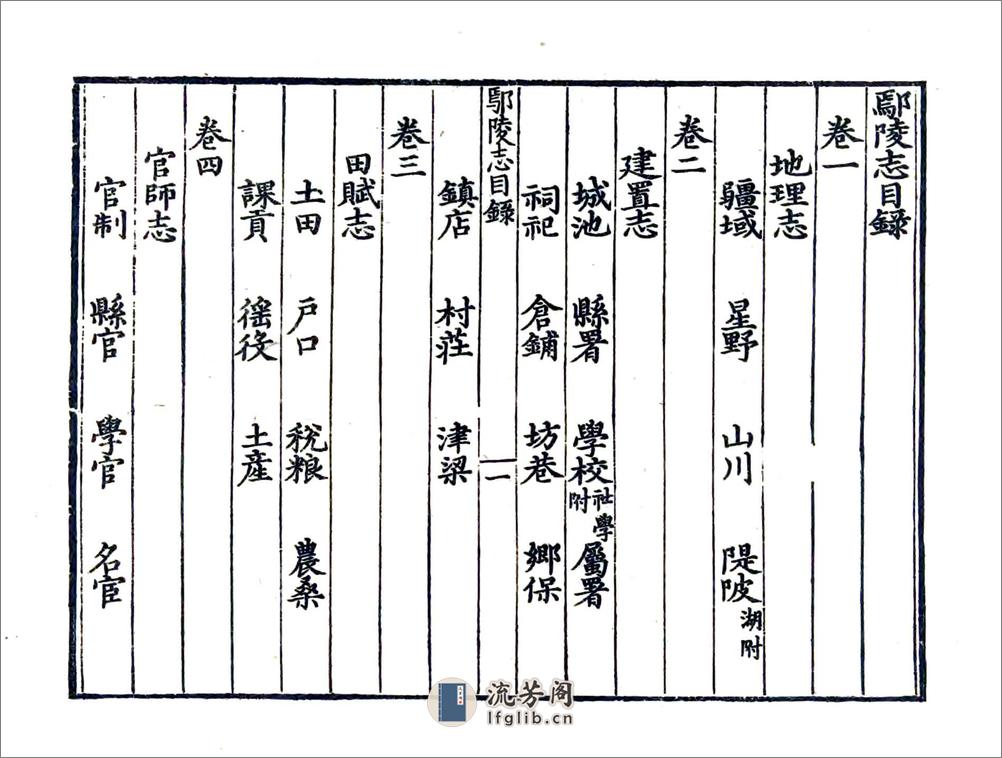 鄢陵志目錄
卷一
地理志
疆域 星野 山川 隄陂湖附
卷二
建置志
城池 縣署 學校社學附 屬署
祠祀 倉鋪 坊巷 鄉保
鄢陵志目錄 一
鎮店 村莊 津梁
卷三
田賦志
土田 戶口 稅粮 農桑
課貢 徭役 土產
卷四
官師志
官制 縣官 學官 名宦
流芳阁
lfglib.cn